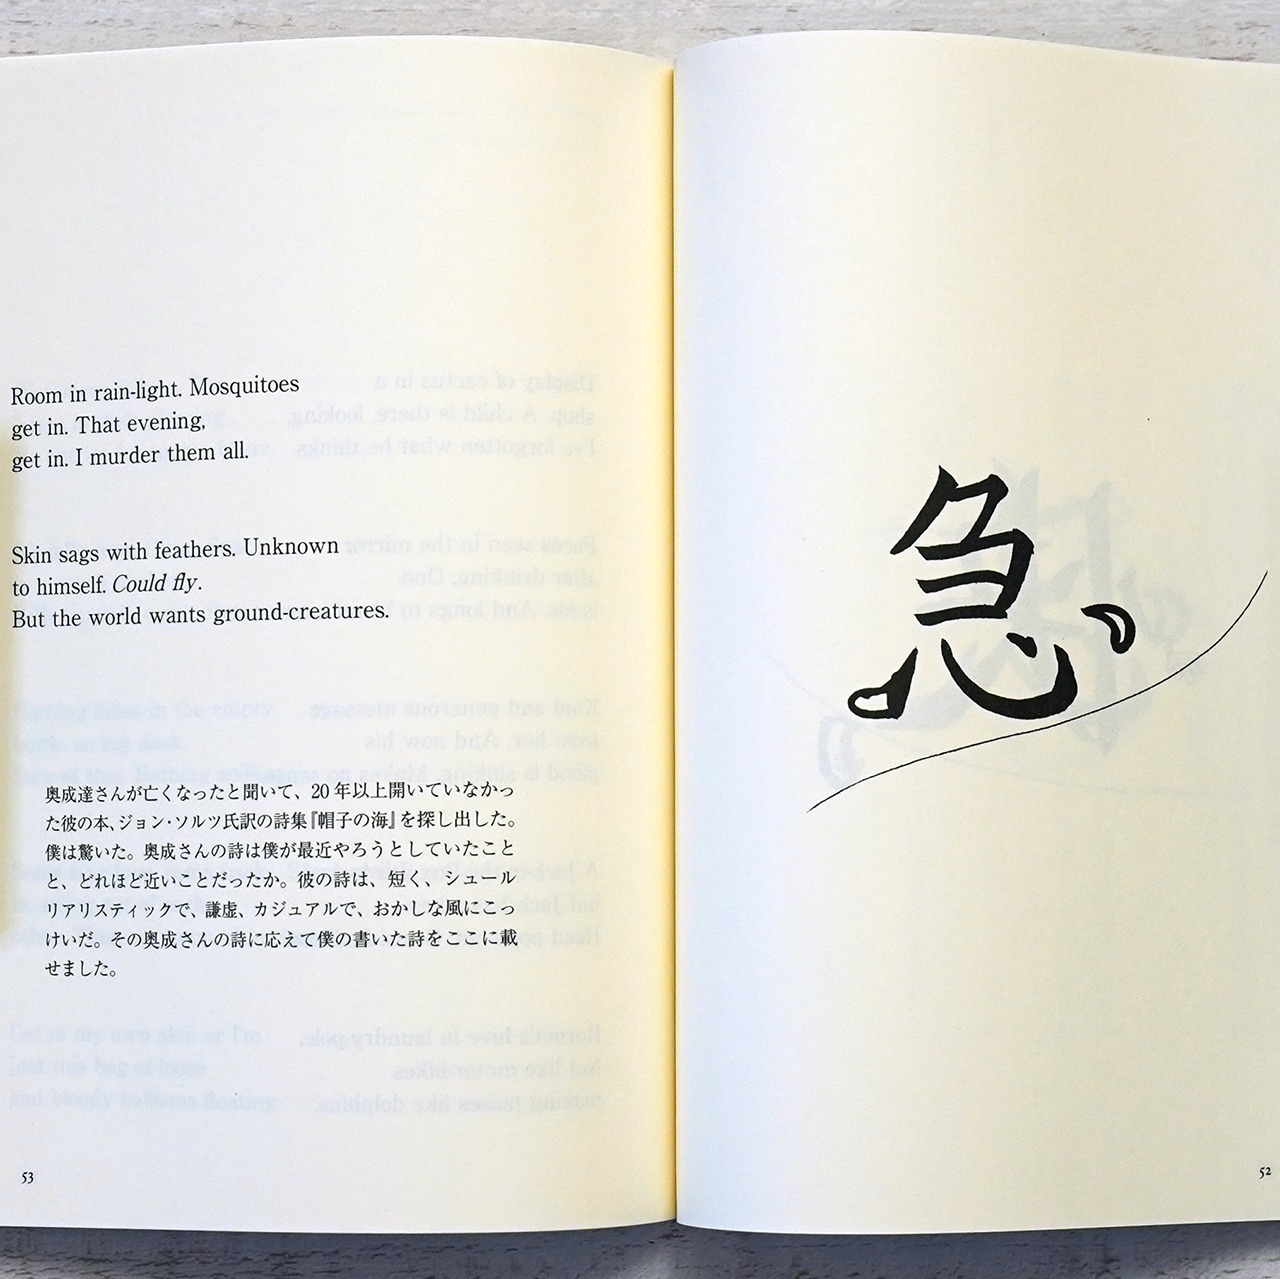 Room in rain-light. Mosquitoes
get in. That evening,
get in. I murder them all.
Skin sags with feathers. Unknown
to himself. Could fly.
But the world wants ground-creatures.
奥成達さんが亡くなったと聞いて、20年以上開いていなかっ
た彼の本、ジョン・ソルツ氏訳の詩集『帽子の海』を探し出した。
僕は驚いた。奥成さんの詩は僕が最近やろうとしていたこと
と、どれほど近いことだったか。彼の詩は、短く、シュール
リアリスティックで、謙虚、カジュアルで、おかしな風にこっ
けいだ。その奥成さんの詩に応えて僕の書いた詩をここに載
せました。
53
急
52